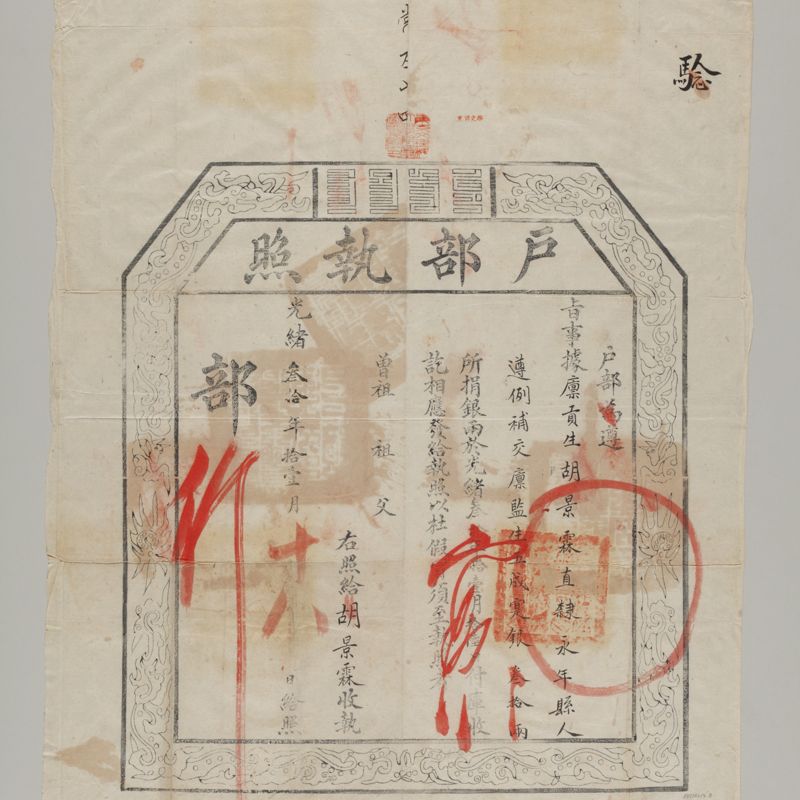 騐
戶部執照
戶部為遵
旨事據廪貢生胡景霖直隸永年縣人
遵例補交廪監生五成實銀叁拾兩
所捐銀兩於光緒叁拾壹月
訖相應發給執照以杜假須至執照
曾祖 祖 父
右照給胡景霖收執
光緒叁拾年拾壹月十八日給照
部